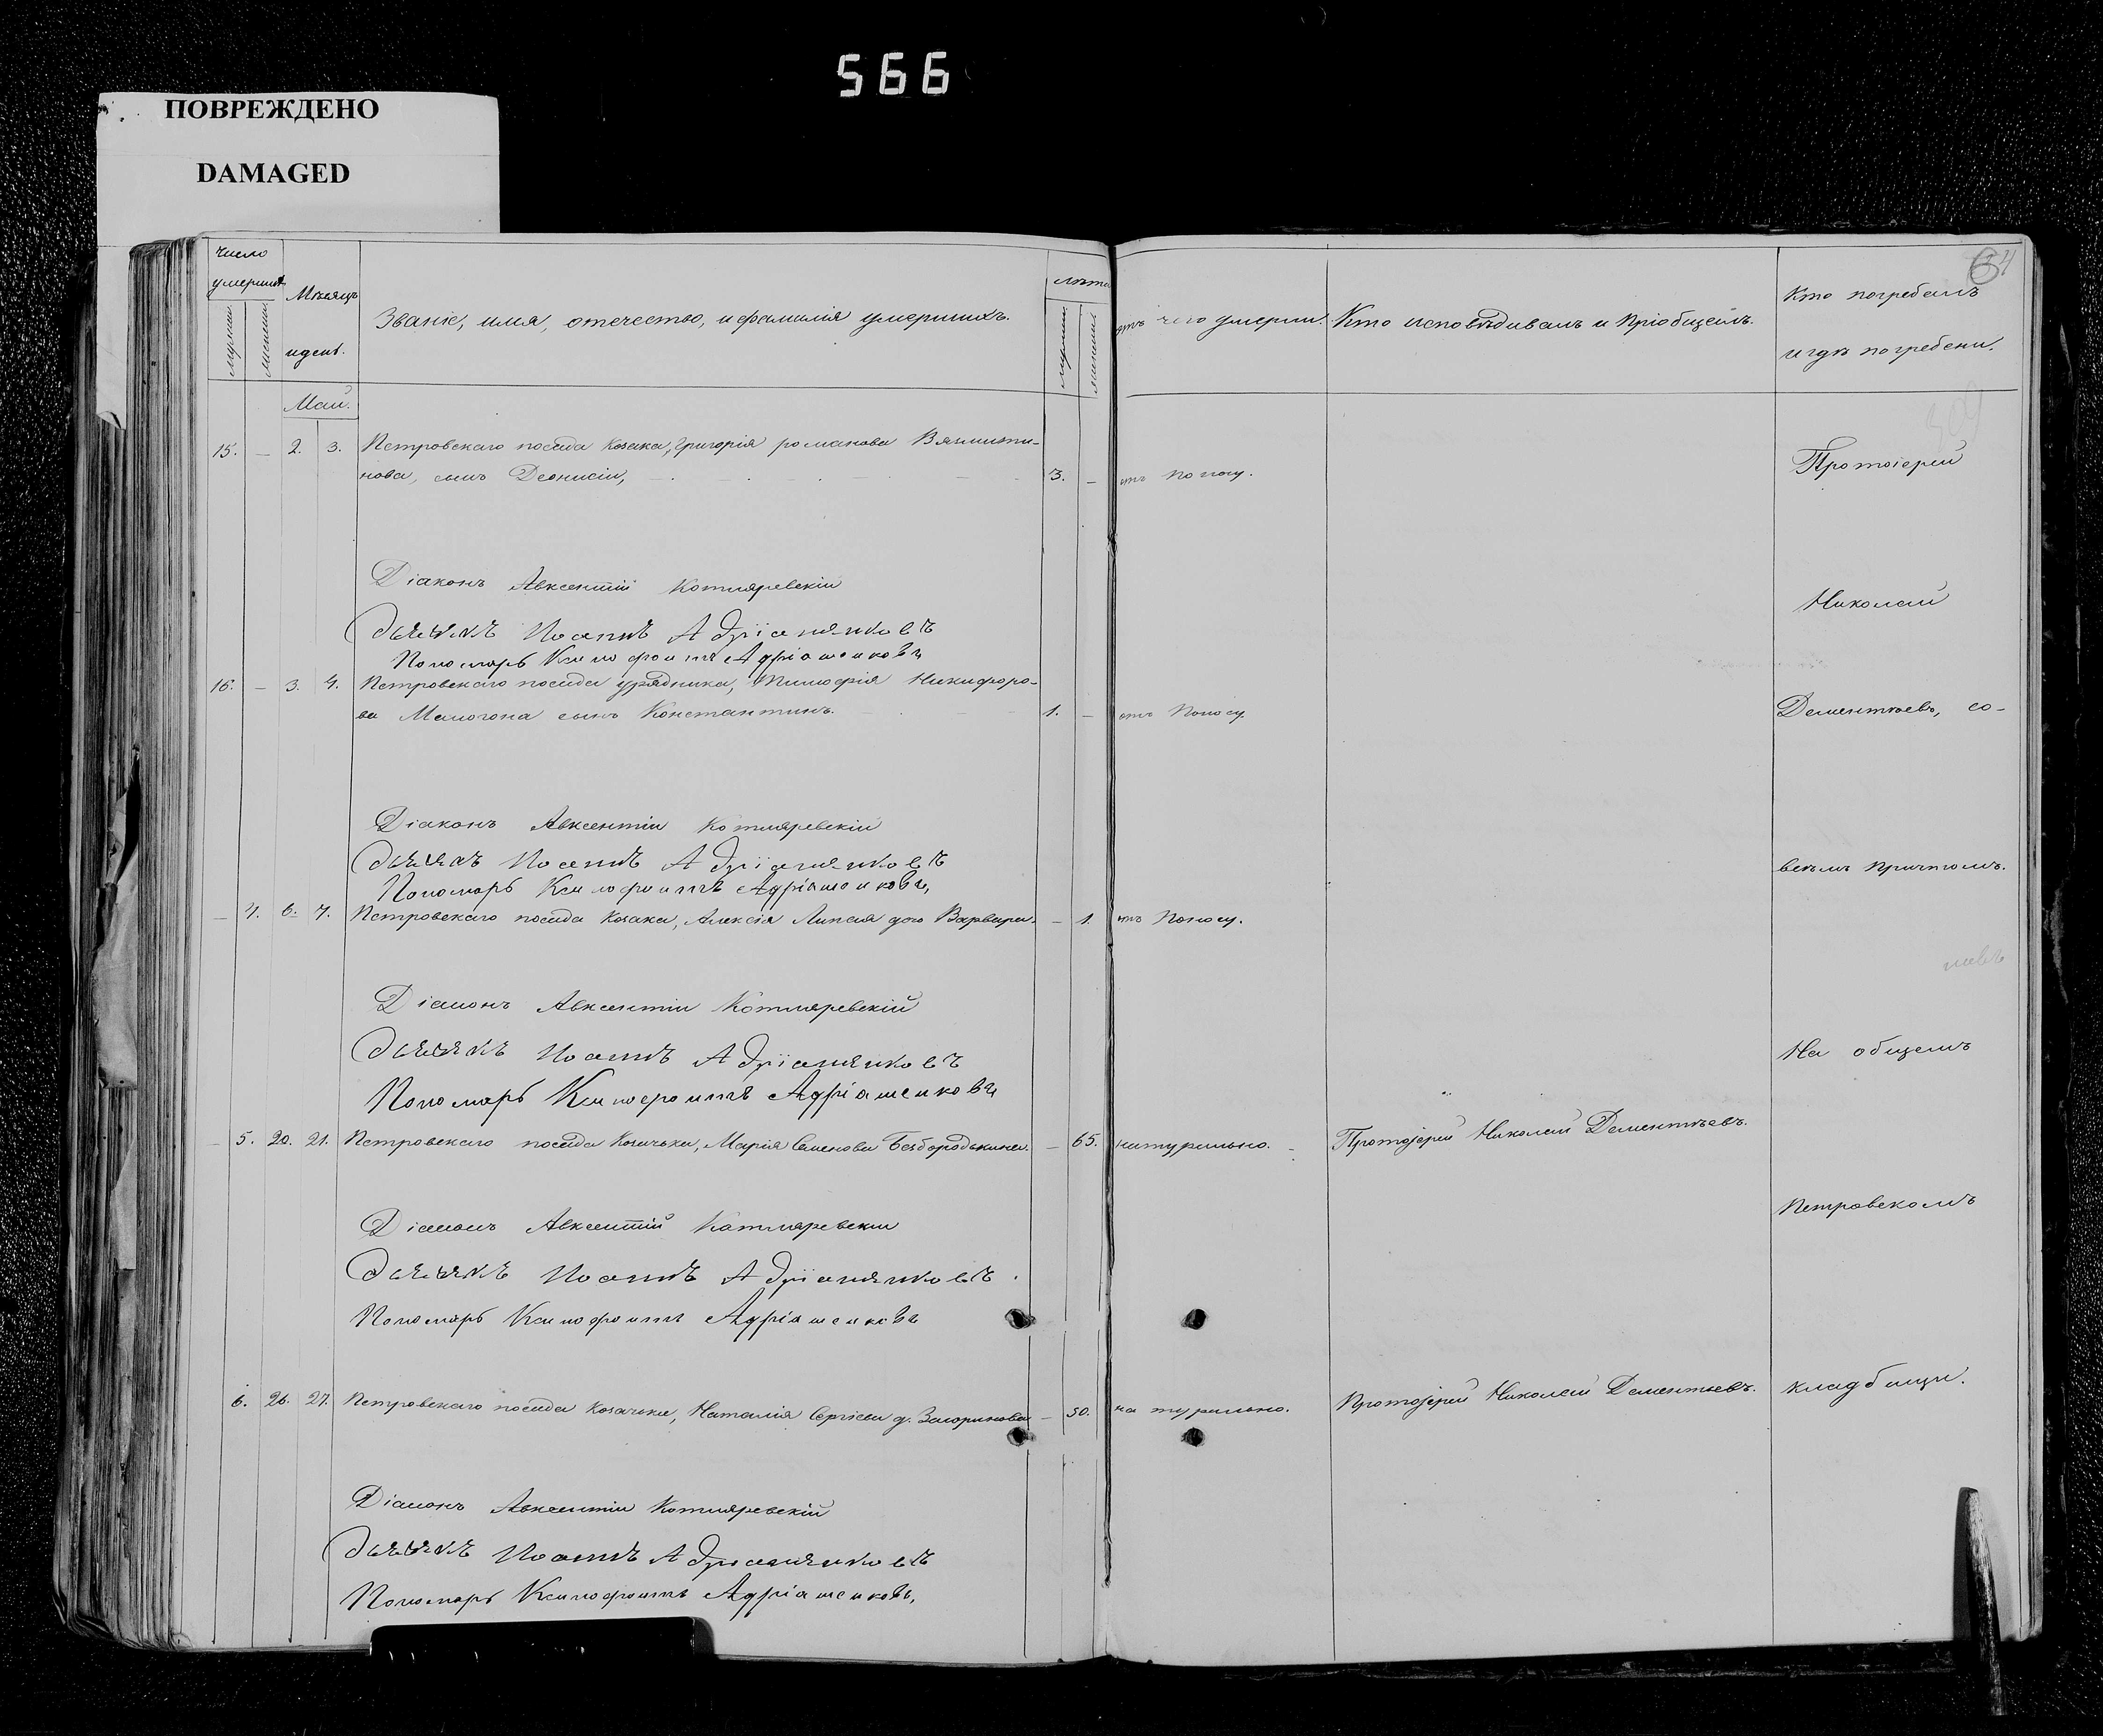 566
ПОВРЕЖДЕНО
DAMAGED
Число умершихъ
мужеска
женска
Мѣсяцъ и день.
Званіе, имя, отечество, и фамилія умершихъ.
лѣта
мужеска
женска
отъ чего умерли.
Кто исповѣдивалъ и пріобщалъ.
Кто погребалъ
и гдѣ погребены.
Май.
15. — 2. 3. Петровскаго посада козака, Григорія романова Вязмити-
нова, сынъ Деонисій, 3. — отъ поносу.
Діаконъ Авксентій Котляревскій
Дьячекъ Иоаннъ Адріаненковъ
Пономарь Ксинофонтъ Адріаненковъ
16. — 3. 4. Петровскаго посада урядника, Тимофія Никифоро-
ва Малогона сынъ Константинъ. 1. — отъ Поносу
Діаконъ Авксентій Котляревскій
Дьячекъ Иоаннъ Адріаненковъ
Пономарь Ксинофонтъ Адріаненковъ,
— 4. 6. 7. Петровскаго посада козака, Алексія Липая дочь Варвара. — 1. отъ Поносу.
Діаконъ Авксентій Котляревскій
Дьячекъ Иоаннъ Адріаненковъ
Пономарь Ксинофонтъ Адріаненковъ
— 5. 20. 21. Петровскаго посада Козачька, Марія Семенова Безбородькина. — 65. натурально. Протоіерей Николай Дементьевъ.
Діаконъ Авксентій Котляревскій
Дьячекъ Иоаннъ Адріаненковъ.
Пономарь Ксинофонтъ Адріаненковъ
6. 26. 27. Петровскаго посада козачька, Наталія Сергіева д. — 50. натурально. Протоіерей Николай Дементьевъ.
Діаконъ Авксентій Котляревскій
Дьячекъ Иоаннъ Адріаненковъ
Пономарь Ксинофонтъ Адріаненковъ,
Протоіерей
Николай
Дементьевъ, со-
всѣмъ причтомъ.
На общемъ
Петровскомъ
кладбищи.